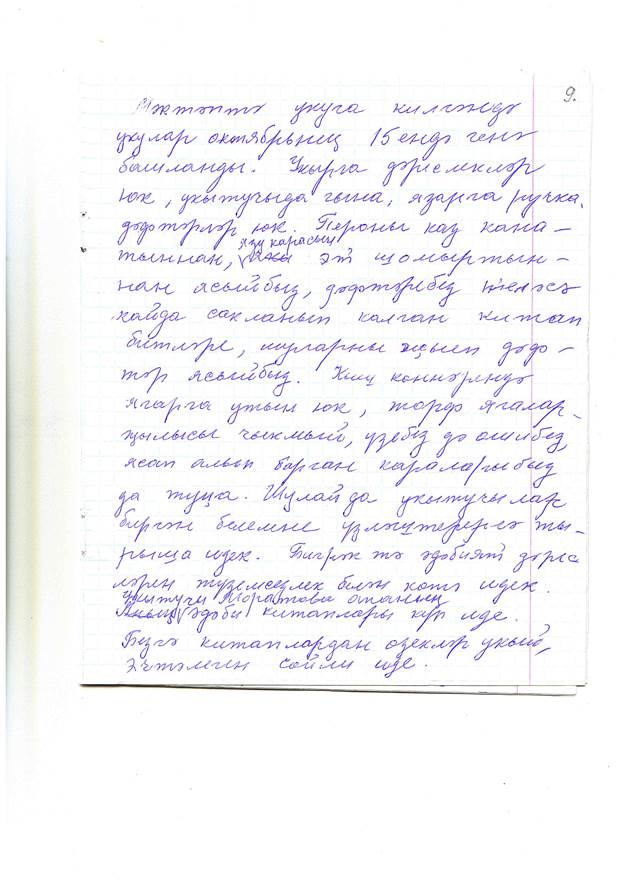 9.
Мәктәптә укуга килгәндә
укулар октябрьнең 15ендә генә
башланды. Укырга дәреслекләр
юк, укытучыда гына, язарга ручка,
дәфтәрләр юк. Пероны каз кана-
тыннан, язу карасын эт шомыртын-
нан ясыйбыз, дәфтәребез теләсә
кайда сакланып калган китап
битләре, шуларны җыеп дәф-
тәр ясыйбыз. Кыш көннәрендә
ягарга утын юк, торф ягалар-
җылысы чыкмый, үзебез дә өшибез,
ясап алып барган караларыбыз
да туңа. Шулай да укытучылар
биргән белемне үзләштерергә ты-
рыша идек. Бигрәк тә әдәбият дәрес-
ләрен түземсезлек белән көтә идек.
укытучы Моратова апаның
әдәби китаплары күп иде.
Безгә китаплардан өзекләр укый,
эчтәлеген сөйли иде.